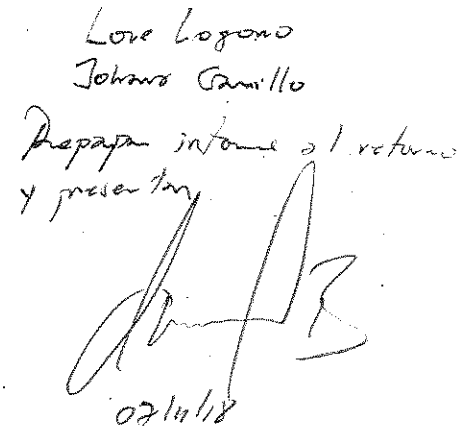 Love Logono
Johana Camillo
Preparar informe al retorno
y presentar
07/11/18